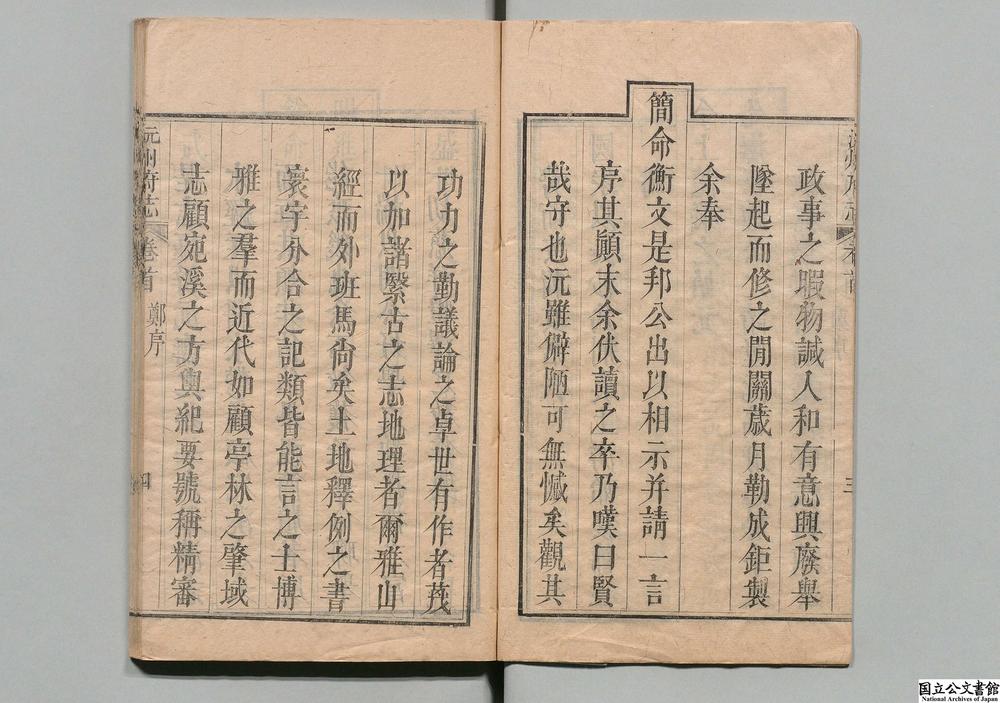 政事之暇物諴人和有意興廢舉
墜起而修之閒關歲月勒成鉅製
余奉
簡命衡文是邦公出以相示并請一言
序其顚末余伏讀之卒乃嘆曰賢
哉守也沅雖僻陋可無憾矣觀其
三
功力之勤議論之卓世有作者蔑
以加諸緊古之志地理者爾雅山
經而外班馬尙矣土地釋例之書
寰宇分合之記類皆能言之士博
雅之羣而近代如顧亭林之肇域
志顧宛溪之方輿紀要號稱精審
沅州府志
卷首
鄭序
四
国立公文書館
National Archives of Japan